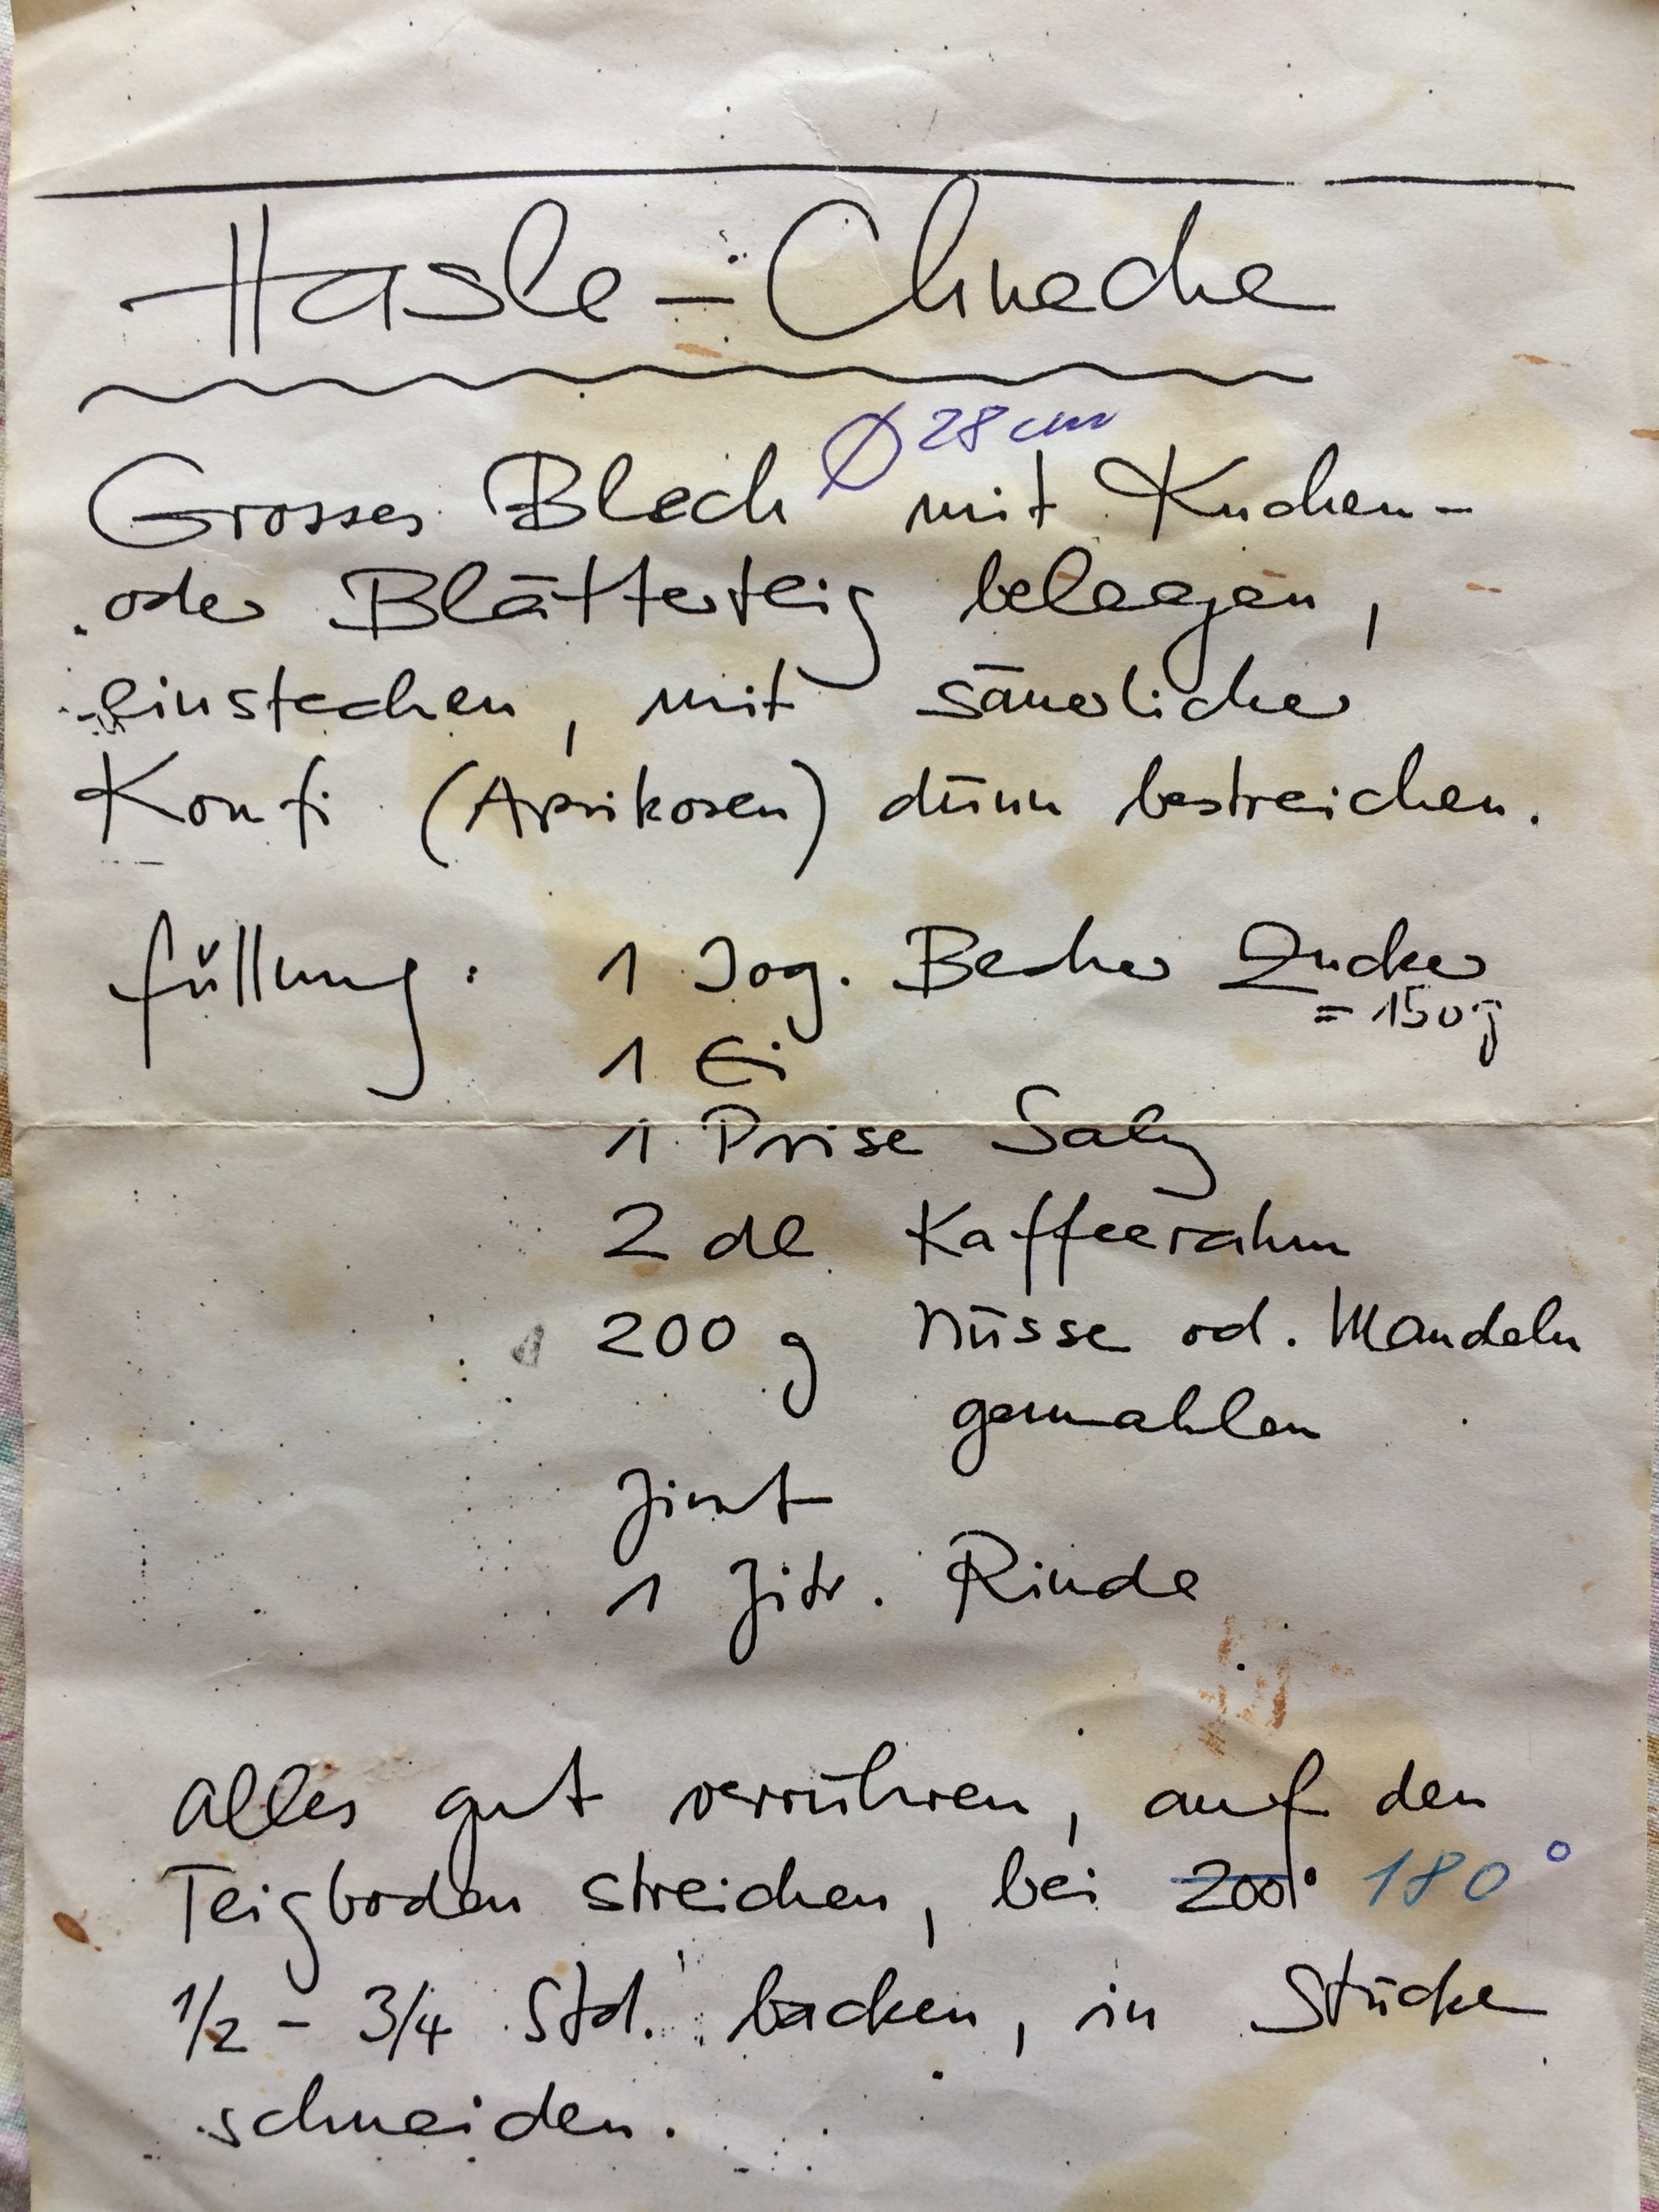 Hasle-Chueche
Ø 28 cm
Grosses Blech mit Kuchen-
oder Blätterteig belegen,
einstechen, mit säuerlicher
Konfi (Aprikosen) dünn bestreichen.
Füllung: 1 Jog. Becher Zucker
= 150 g
1 Ei
1 Prise Salz
2 dl Kaffeerahm
200 g Nüsse od. Mandeln
gemahlen
Zimt
1 Zitr. Rinde
Alles gut verrühren, auf den
Teigboden streichen, bei 200° 180°
1/2 - 3/4 Std. backen, in Stücke
schneiden.